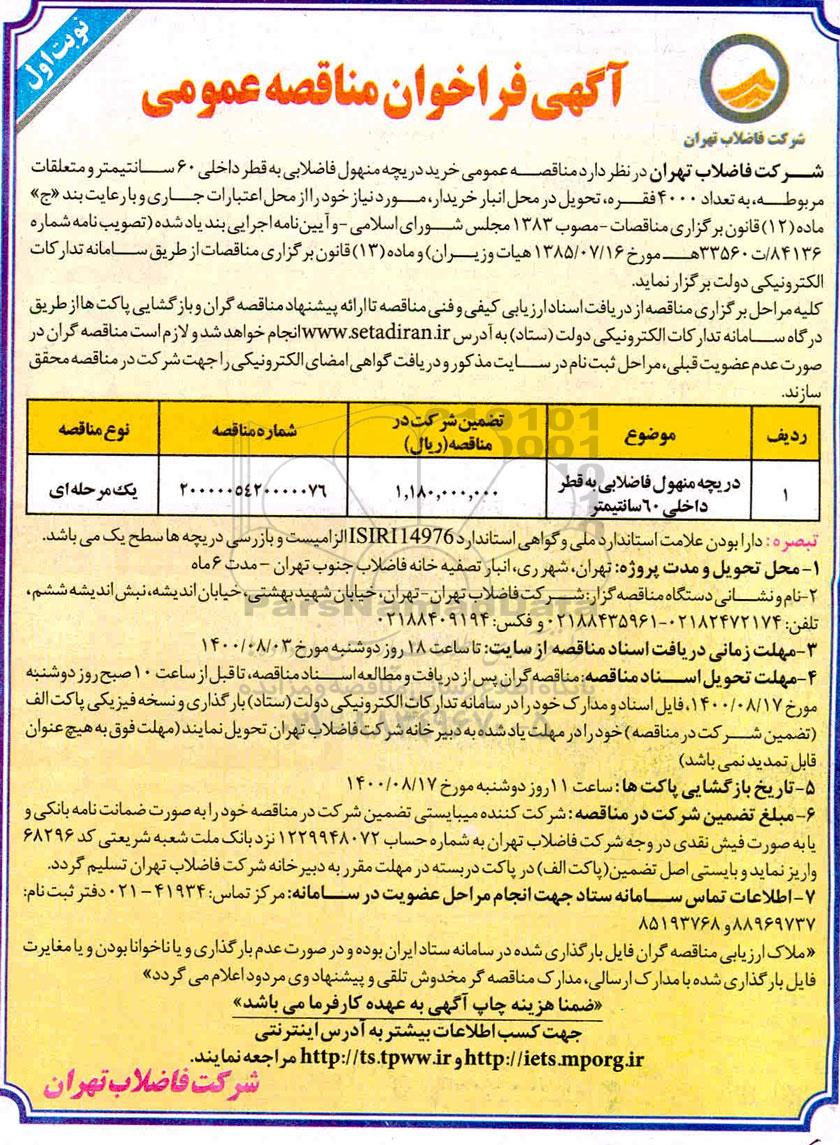 نوبت اول
آگهی فراخوان مناقصه عمومی
شرکت فاضلاب تهران
شرکت فاضلاب تهران در نظر دارد مناقصه عمومی خرید دریچه منهول فاضلابی به قطر داخلی ۶۰ سانتیمتر و متعلقات
مربوطه، به تعداد ۴۰۰۰ فقره، تحویل در محل انبار خریدار، مورد نیاز خود را از محل اعتبارات جاری و با رعایت بند «ج»
ماده (۱۲) قانون برگزاری مناقصات - مصوب ۱۳۸۳ مجلس شورای اسلامی - و آیین نامه اجرایی بند یاد شده (تصویب نامه شماره
۸۴۱۳۶/ت ۳۳۵۶۰هـ مورخ ۱۳۸۵/۰۷/۱۶ هیات وزیران) و ماده (۱۳) قانون برگزاری مناقصات از طریق سامانه تدارکات
الکترونیکی دولت برگزار نماید.
کلیه مراحل برگزاری مناقصه از دریافت اسناد ارزیابی کیفی و فنی مناقصه تا ارائه پیشنهاد مناقصه گران و بازگشایی پاکت ها از طریق
درگاه سامانه تدارکات الکترونیکی دولت (ستاد) به آدرس www.setadiran.ir انجام خواهد شد و لازم است مناقصه گران در
صورت عدم عضویت قبلی، مراحل ثبت نام در سایت مذکور و دریافت گواهی امضای الکترونیکی را جهت شرکت در مناقصه محقق
سازند.
ردیف موضوع تضمین شرکت در مناقصه (ریال) شماره مناقصه نوع مناقصه
۱ دریچه منهول فاضلابی به قطر داخلی ۶۰ سانتیمتر ۱,۱۸۰,۰۰۰,۰۰۰ ۲۰۰۰۰۰۵۴۲۰۰۰۰۰۷۶ یک مرحله ای
تبصره: دارا بودن علامت استاندارد ملی و گواهی استاندارد ISIRI14976 الزامیست و بازرسی دریچه ها سطح یک می باشد.
۱- محل تحویل و مدت پروژه: تهران، شهر ری، انبار تصفیه خانه فاضلاب جنوب تهران - مدت ۶ ماه
۲- نام و نشانی دستگاه مناقصه گزار: شرکت فاضلاب تهران - تهران، خیابان شهید بهشتی، خیابان اندیشه، نبش اندیشه ششم،
تلفن: ۰۲۱۸۲۴۷۲۱۷۴-۰۲۱۸۸۴۳۵۹۶۱ و فکس: ۰۲۱۸۸۴۰۹۱۹۴
ParsNamadData
۳- مهلت زمانی دریافت اسناد مناقصه از سایت: تا ساعت ۱۸ روز دوشنبه مورخ ۱۴۰۰/۰۸/۰۳
۴- مهلت تحویل اسناد مناقصه: مناقصه گران پس از دریافت و مطالعه اسناد مناقصه، تا قبل از ساعت ۱۰ صبح روز دوشنبه
مورخ ۱۴۰۰/۰۸/۱۷، فایل اسناد و مدارک خود را در سامانه تدارکات الکترونیکی دولت (ستاد) بارگذاری و نسخه فیزیکی پاکت الف
(تضمین شرکت در مناقصه) خود را در مهلت یاد شده به دبیرخانه شرکت فاضلاب تهران تحویل نمایند (مهلت فوق به هیچ عنوان
قابل تمدید نمی باشد)
۵- تاریخ بازگشایی پاکت ها: ساعت ۱۱ روز دوشنبه مورخ ۱۴۰۰/۰۸/۱۷
۶- مبلغ تضمین شرکت در مناقصه: شرکت کننده میبایستی تضمین شرکت در مناقصه خود را به صورت ضمانت نامه بانکی و
یا به صورت فیش نقدی در وجه شرکت فاضلاب تهران به شماره حساب ۱۲۲۹۹۴۸۰۷۲ نزد بانک ملت شعبه شریعتی کد ۶۸۲۹۶
واریز نماید و بایستی اصل تضمین (پاکت الف) در پاکت دربسته در مهلت مقرر به دبیرخانه شرکت فاضلاب تهران تسلیم گردد.
۷- اطلاعات تماس سامانه ستاد جهت انجام مراحل عضویت در سامانه: مرکز تماس: ۴۱۹۳۴-۰۲۱ دفتر ثبت نام:
۸۸۹۶۹۷۳۷ و ۸۵۱۹۳۷۶۸
«ملاک ارزیابی مناقصه گران فایل بارگذاری شده در سامانه ستاد ایران بوده و در صورت عدم بارگذاری و یا ناخوانا بودن و یا مغایرت
فایل بارگذاری شده با مدارک ارسالی، مدارک مناقصه گر مخدوش تلقی و پیشنهاد وی مردود اعلام می گردد»
«ضمنا هزینه چاپ آگهی به عهده کارفرما می باشد»
جهت کسب اطلاعات بیشتر به آدرس اینترنتی
http://iets.mporg.ir و http://ts.tpww.ir مراجعه نمایند.
شرکت فاضلاب تهران